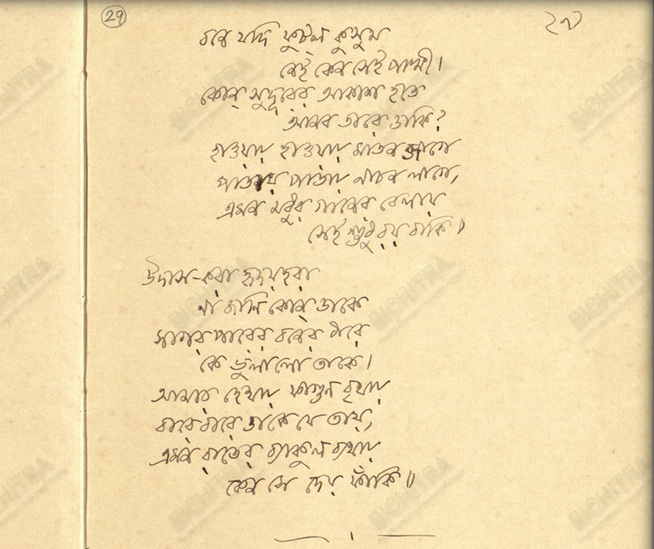 29
২৯
বনে যদি ফুটল কুসুম
নেই কেন সেই পাখী।
কোন সুদূরের আকাশ হতে
আনব তারে ডাকি?
হাওয়ায় হাওয়ায় মাতন জাগে
পাতায় পাতায় নাচন লাগে,
এমন মধুর গানের বেলায়
সেই শুধু রয় বাকি॥
উদাস-করা হৃদয়হরা
না জানি কোন ডাকে
সাগর পারের বনের ধারে
কে ভুলালো তাকে।
আমার হেথায় ফাগুন বৃথায়
বারে বারে ডাকে যে তায়,
এমন রাতের ব্যাকুল ব্যথায়
কেন সে দেয় ফাঁকি॥
BICHITRA